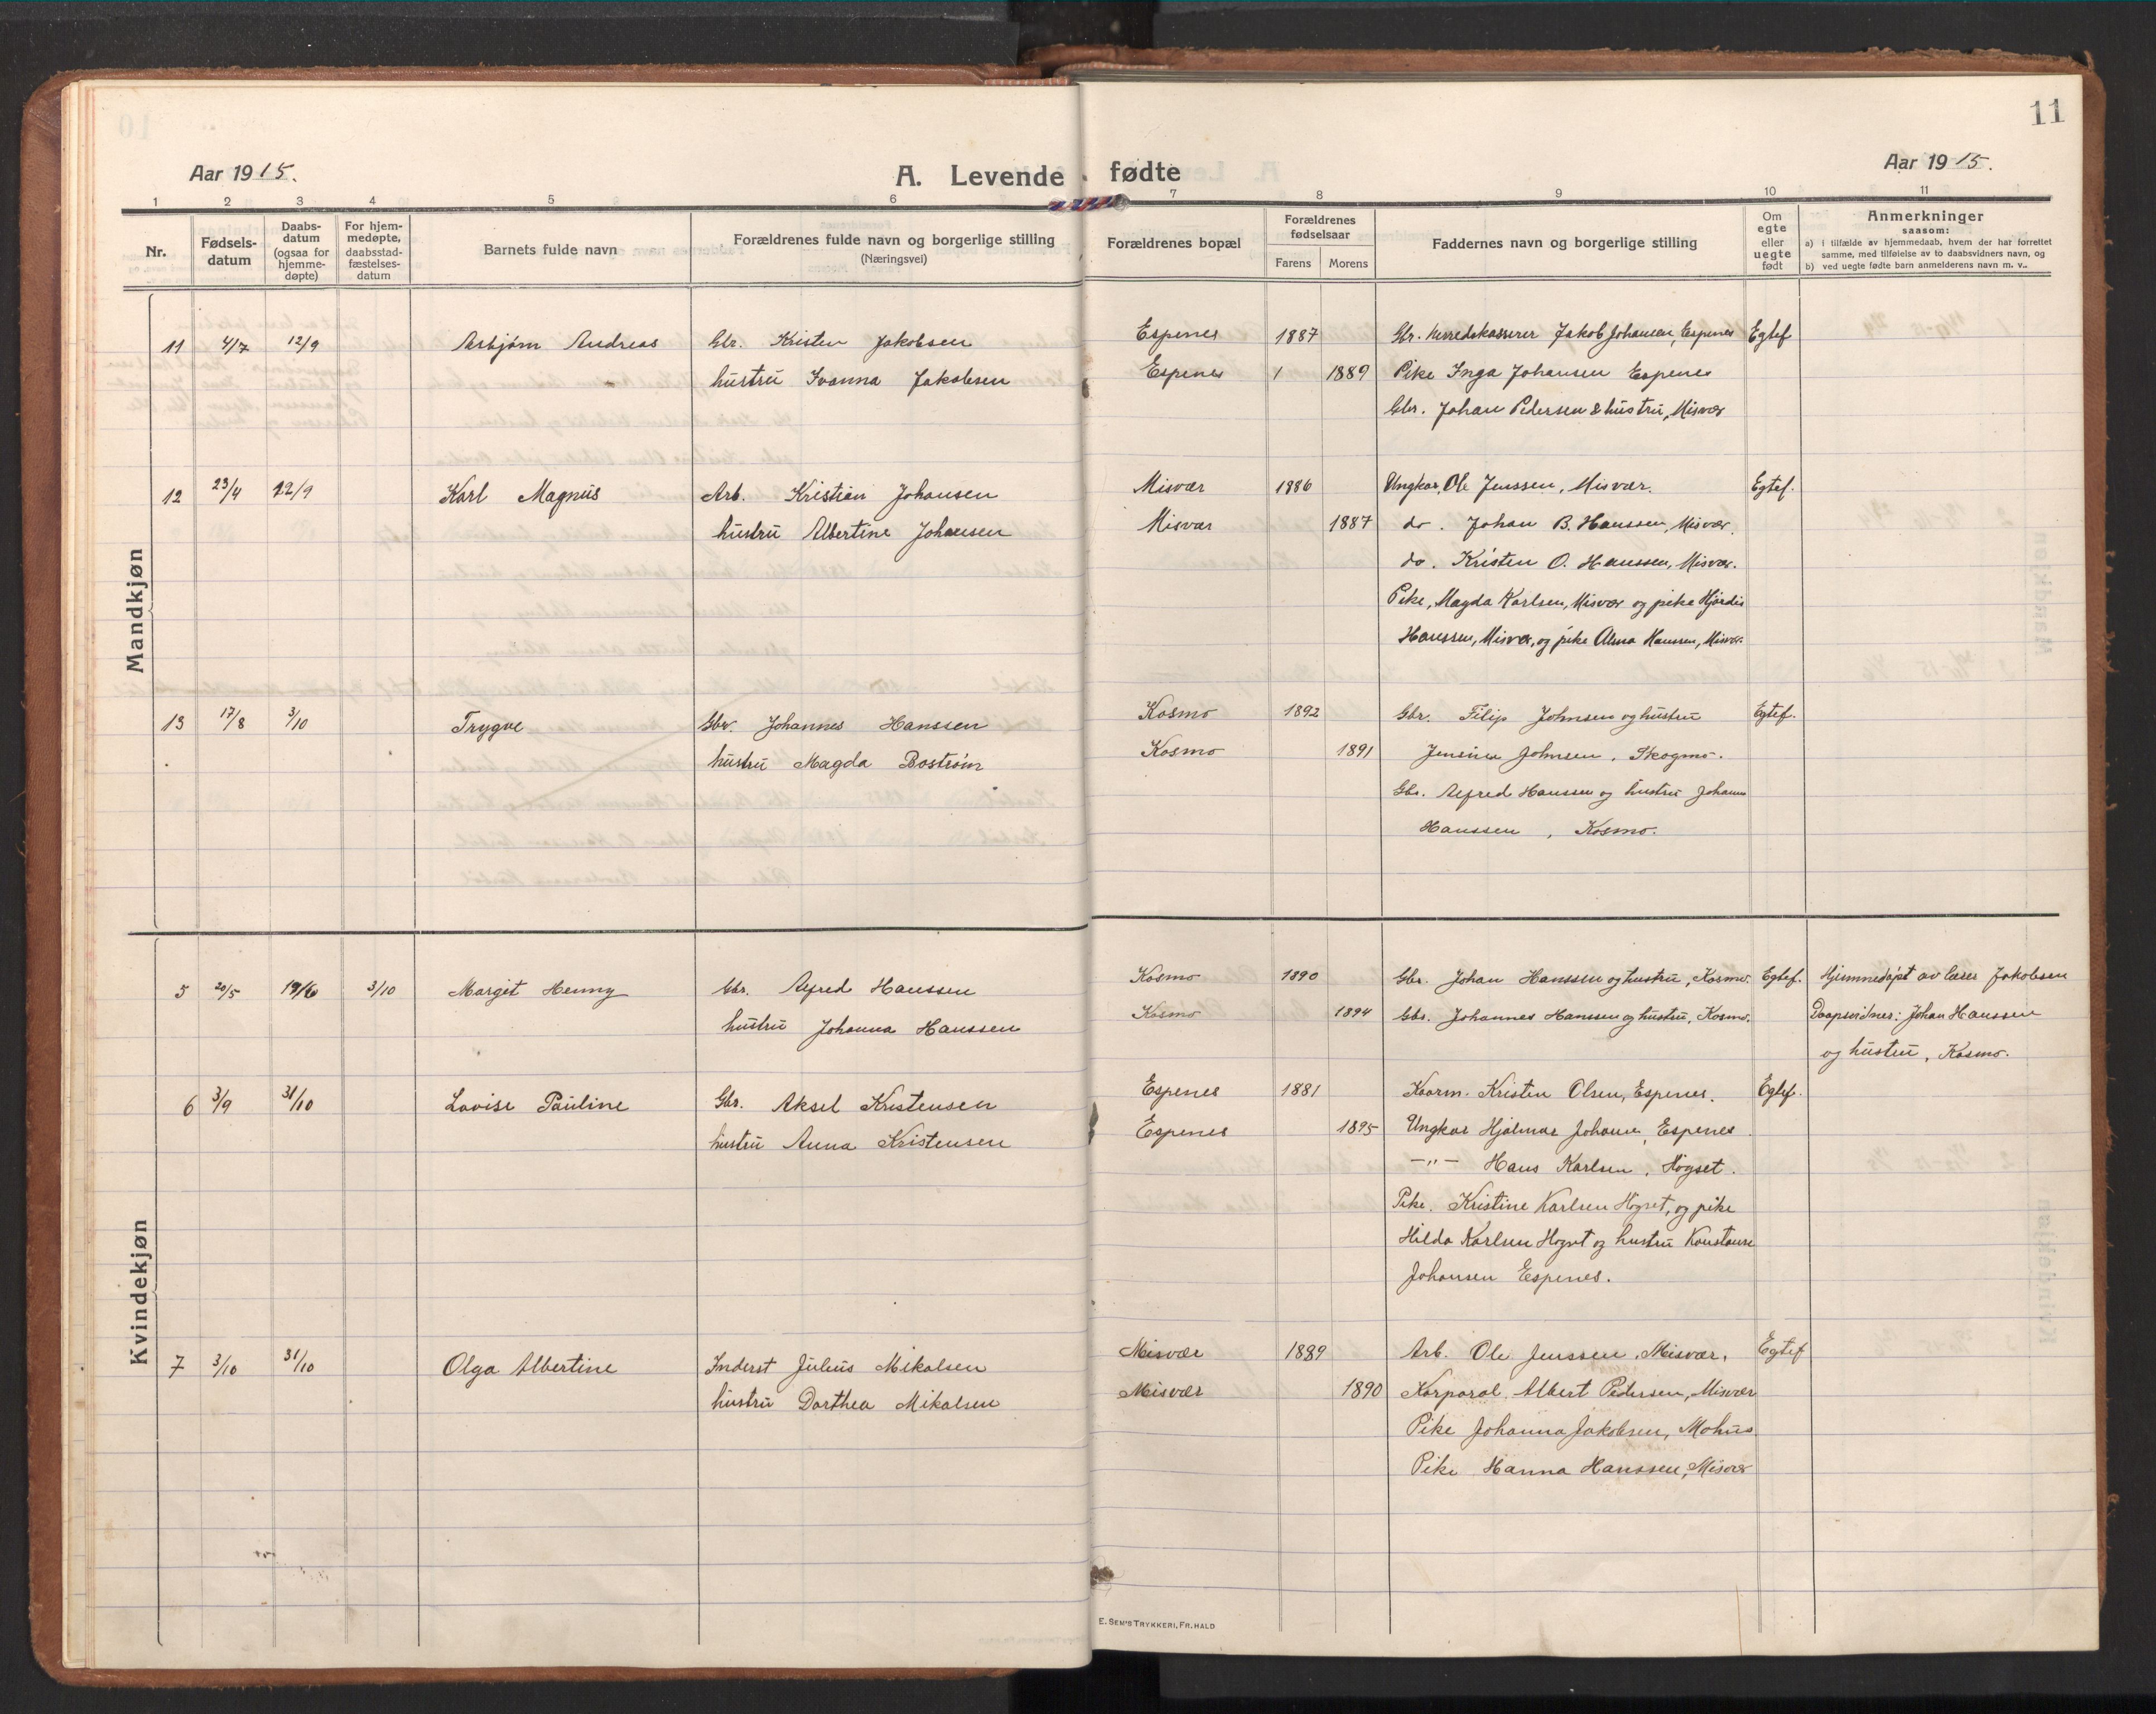 11
Aar 1915.
A. Levende fødte
Aar 1915.
1 2 3 4 5 6 7 8 9 10 11
Nr.
Fødsels-
datum
Daabs-
datum
(ogsaa for
hjemme-
døpte)
For hjem-
medøpte,
daabsstad-
fæstelses-
datum
Barnets fulde navn
Forældrenes fulde navn og borgerlige stilling
(Næringsvei)
Forældrenes bopæl
Forældrenes
fødselsaar
Farens Morens
Faddernes navn og borgerlige stilling
Om
egte
eller
uegte
født
Anmerkninger
saasom:
a) i tilfælde av hjemmedaab, hvem der har forrettet
samme, med tilføielse av to daabsvidners navn, og
b) ved uegte fødte barn anmelderens navn m. v..
Mandkjøn
11 4/7 12/9 Asbjørn Andreas Gbr. Kristen Jakobsen Espenes 1887 Gbr. herredskasserer Jakob Johansen, Espenes Egtef
hustru Ivanna Jakobsen Espenes 1889 Pike Inga Johansen Espenes
Gbr. Johan Pedersen & hustru, Misvær
12 23/4 12/9 Karl Magnus Arb. Kristian Johansen Misvær 1886 Ungkar, Ole Jenssen, Misvær. Egtef.
hustru Albertine Johansen Misvær 1887 do. Johan B. Hanssen, Misvær.
do. Kristen O. Hanssen, Misvær.
Pike, Magda Karlsen, Misvær og pike Hjørdis
Hanssen, Misvær, og pike Alma Hanssen, Misvær.
13 17/8 3/10 Trygve Gbr. Johannes Hanssen Kosmo 1892 Gbr. Filip Johnsen og hustru Egtef.
hustru Magda Bostrøm Kosmo 1891 Jensine Johnsen, Skogmo.
Gbr. Alfred Hanssen og hustru Johanna
Hanssen, Kosmo.
Kvindekjøn
5 20/5 19/6 3/10 Margit Henny Gbr. Alfred Hanssen Kosmo 1890 Gbr. Johan Hanssen og hustru, Kosmo. Egtef. Hjemmedøpt av lærer Jakobsen
hustru Johanna Hanssen Kosmo 1894 Gbr. Johannes Hanssen og hustru, Kosmo. Daapsvidner: Johan Hanssen
og hustru, Kosmo.
6 3/9 31/10 Lovise Pauline Gbr. Aksel Kristensen Espenes 1881 Kaarm. Kristen Olsen, Espenes. Egtef.
hustru Anna Kristensen Espenes 1895 Ungkar Hjalmar Johansen, Espenes.
—"— Hans Karlsen, Høgset.
Pike. Kristine Karlsen Høgset, og pike
Hilda Karlsen Høgset og hustru Konstanse
Johansen Espenes.
7 3/10 31/10 Olga Albertine Inderst Julius Mikalsen Misvær 1889 Arb. Ole Jenssen, Misvær. Egtef
hustru Dorthea Mikalsen Misvær 1890 Korporal. Albert Pedersen, Misvær
Pike Johanna Jakobsen, Mohus
Pike Hanna Hanssen, Misvær
E. SEM'S TRYKKERI, FR. HALD